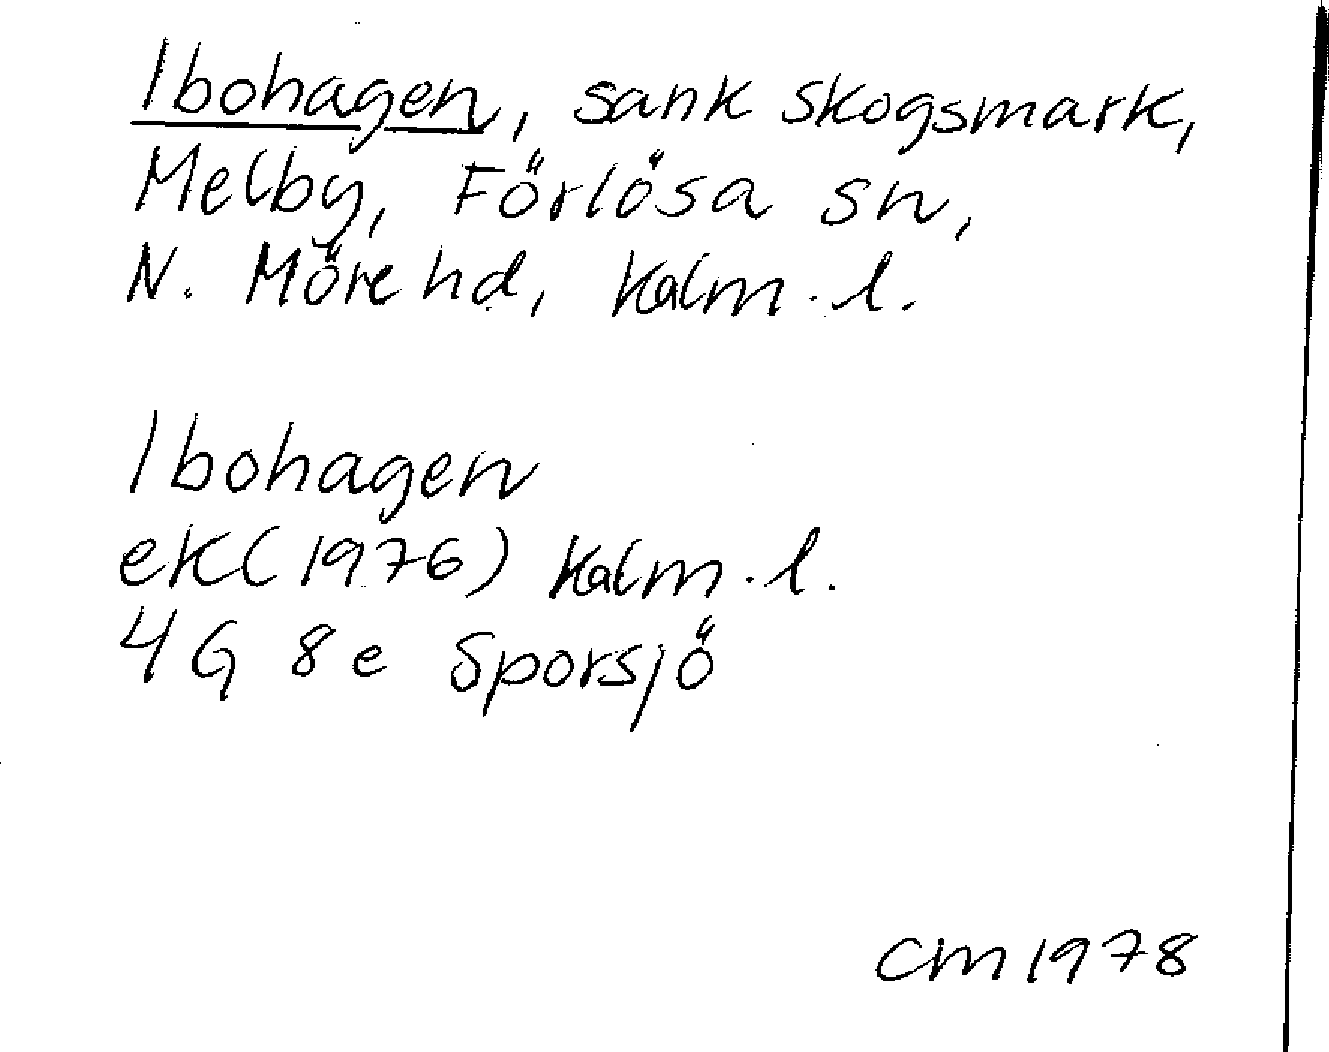 Ibohagen, sank skogsmark,
Melby, Förlösa sn,
N. Möre hd, Kalm. l.
Ibohagen
ek (1976) Kalm. l.
4G 8e Sporsjö
CM 1978